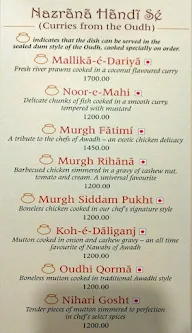 Nazrānā Hāndī Sé
(Curries from the Oudh)
indicates that the dish can be served in the
sealed dum style of the Oudh, cooked specially on order.
Mallikā-é-Dariyā
Fresh river prawns cooked in a coconut flavoured curry
1700.00
Noor-e-Mahi
Delicate chunks of fish cooked in a smooth curry,
tempered with mustard
1200.00
Murgh Fātimī
A tribute to the chefs of Awadh – an exotic chicken delicacy
1450.00
Murgh Rihānā
Barbecued chicken simmered in a gravy of cashew nut,
tomato and cream. A universal favourite
1200.00
Murgh Siddam Pukht
Boneless chicken cooked in our chef's signature style
1200.00
Koh-é-Dāliganj
Mutton cooked in onion and cashew gravy – an all time
favourite of Nawabs of Awadh
1200.00
Oudhi Qormā
Boneless mutton cooked in traditional Awadhi style
1200.00
Nihari Gosht
Tender pieces of mutton simmered to perfection
in chef's select spices
1200.00